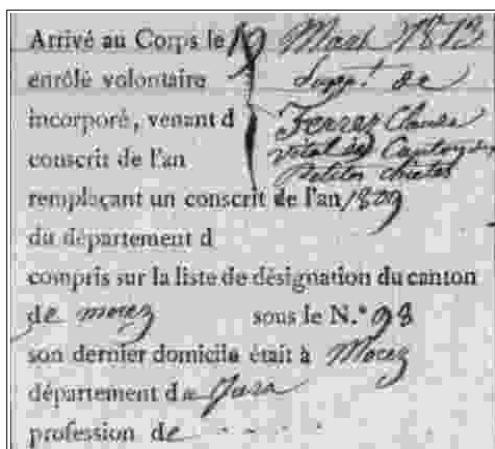 Arrivé au Corps le 19 Mars 1813
enrôlé volontaire Supp.t de
incorporé, venant d Ferrez Claude
conscrit de l'an
remplaçant un conscrit de l'an 1809
du département d
compris sur la liste de désignation du canton
de morez sous le N.° 98
son dernier domicile était à Morez
département du Jura
profession de